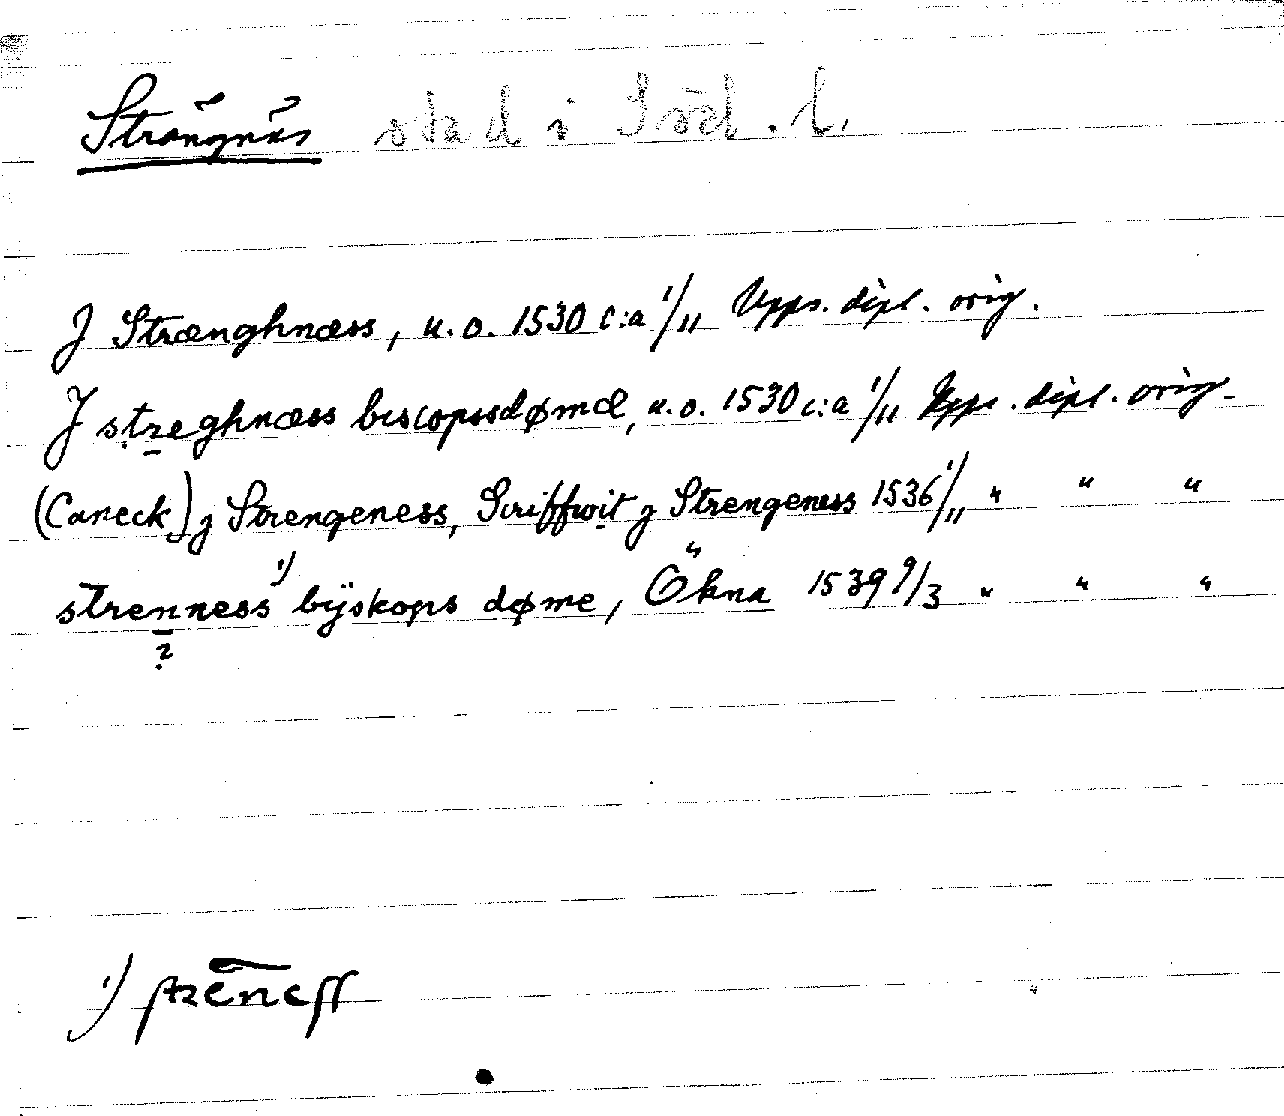 Strängnäs stad i Söd.l.
J Strænghnæss, u.o. 1530 c:a 1/11 Upps. dipl. orig.
J streghnæss biscopssdømæ, u.o. 1530 c:a 1/11 Upps. dipl. orig.
(Caneck) j Strengeness, Scriffwit j Strengeness 1536 1/11 " " "
strenness 1) bijskops døme, Ökna 1539 9/3 " " "
?
1) strēness